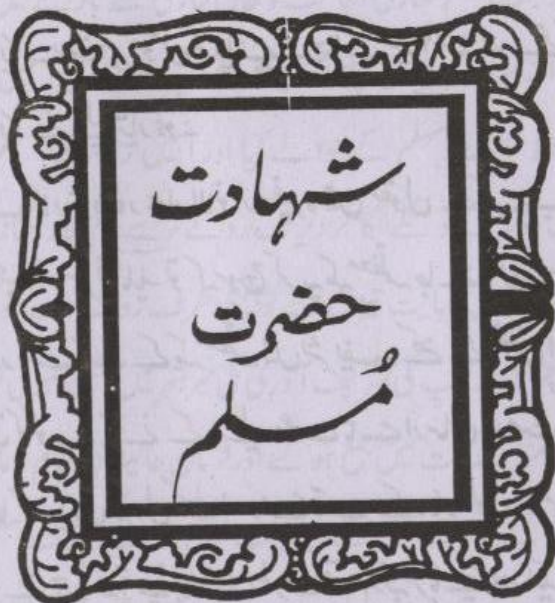 شہادت
حضرت
مُسلم